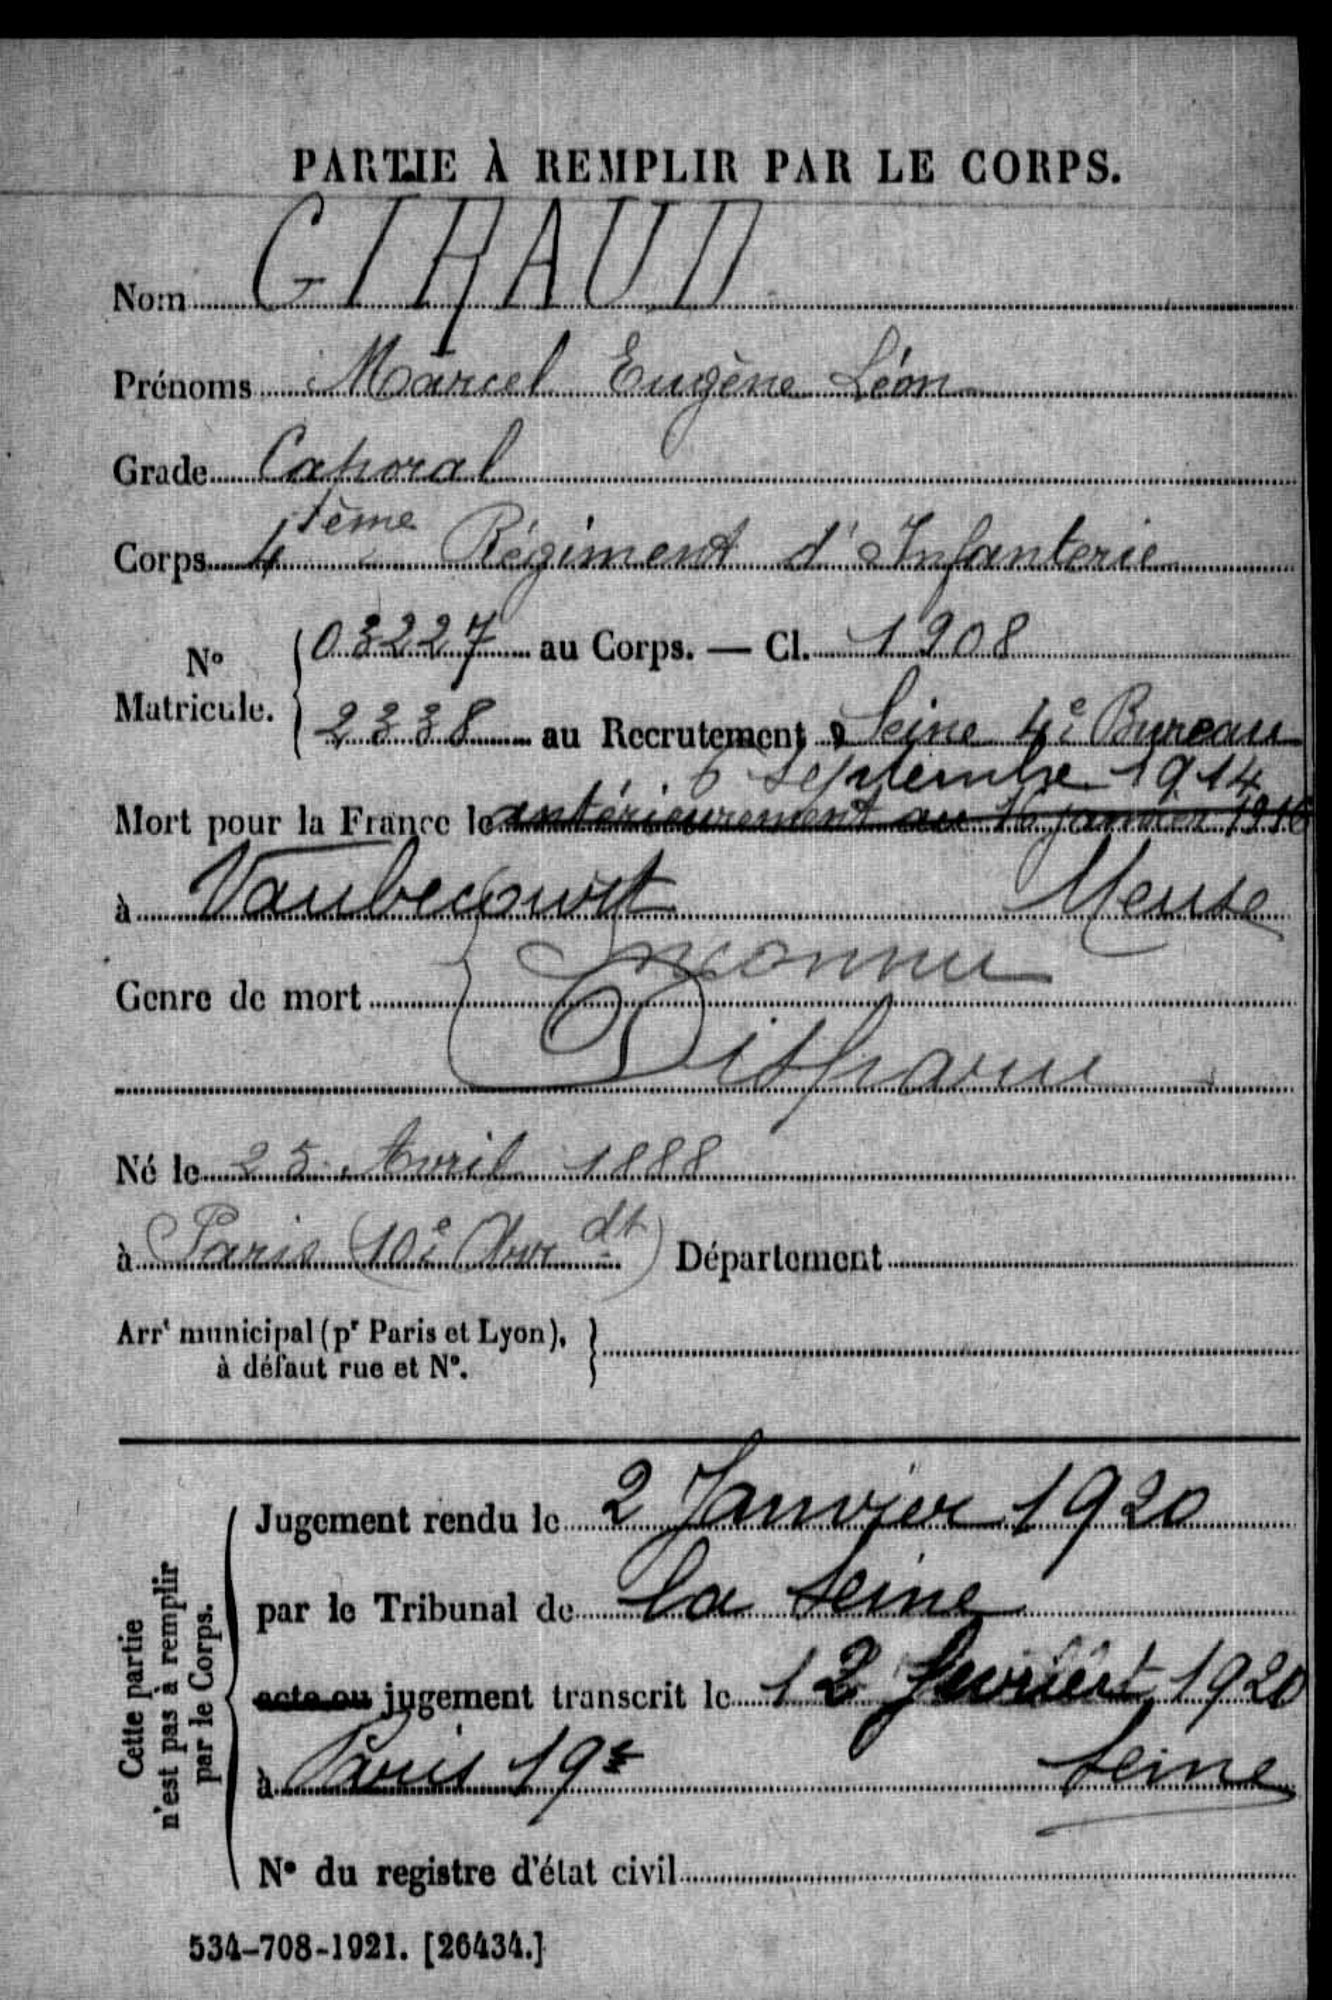 PARTIE À REMPLIR PAR LE CORPS.
Nom GIRAUD
Prénoms Marcel Eugène Léon
Grade Caporal
Corps 4ième Régiment d'Infanterie
N° Matricule. 03227 au Corps. — Cl. 1908
2338 au Recrutement Seine 4e Bureau
6 septembre 1914
Mort pour la France le antérieurement au 16 janvier 1916
à Vaubecourt Meuse
Inconnu
Genre de mort
Disparu
Né le 25 Avril 1888
à Paris (10e Arrdt) Département
Arrt municipal (pr Paris et Lyon),
à défaut rue et N°.
Cette partie
n'est pas à remplir
par le Corps.
Jugement rendu le 2 Janvier 1920
par le Tribunal de la Seine
acte ou jugement transcrit le 12 fevrier 1920
à Paris 19e Seine
N° du registre d'état civil
534-708-1921. [26434.]